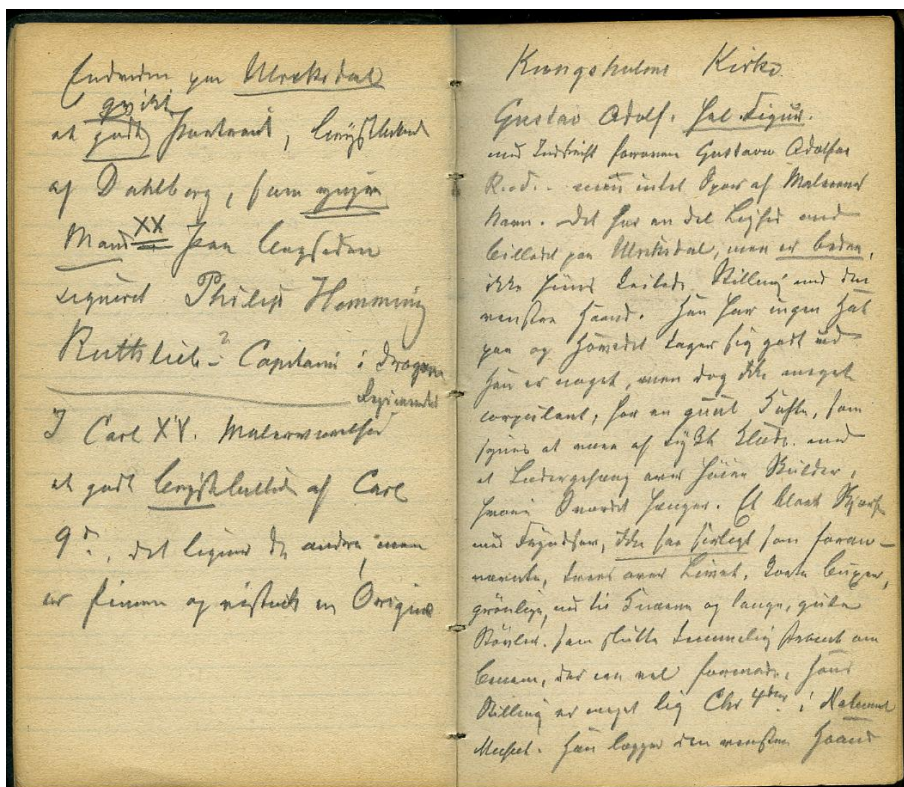 Endvidere paa Ulriksdal
qvikt
et godt Portrait, Brystbilled
af Dahlberg, som yngre
Mand XX Paa Bagsiden
signeret Philip Hemming
Ruthlieb? Capitain i Dragon
Regimentet
I Carl XV. Malerværelse
et godt Brystbilled af Carl
9de, det ligner de andre, men
er finere og vistnok en Original
Kungsholms Kirke
Gustav Adolf. Hel Figur.
med Indskrift foroven Gustavus Adolfus
R. o d. - men intet Spor af Malerens
Navn. Det har en Del Lighed med
Billedet paa Ulriksdal, men er bedre,
ikke hiins Stilling med den
venstre Haand. Han har ingen Hat
paa og Hovedet tager sig godt ud
Han er noget, men dog ikke meget
corpulent, har en guul Trøie, som
synes at være af tykt Klæde med
et Lædergehæng over høire Skulder,
hvori Sværdet hænger. Et blaat Skjærf
med Fryndser, ikke saa sirligt som foran-
nævnte, tvers over Livet, korte Buxer,
grønlige, ned til Knæene og lange, gule
Støvler, som slutte temmelig stramt om
Benene, der ere vel formede. Hans
Stilling er meget lig Chr 4des i National
Museet. Han lægger den venstre Haand